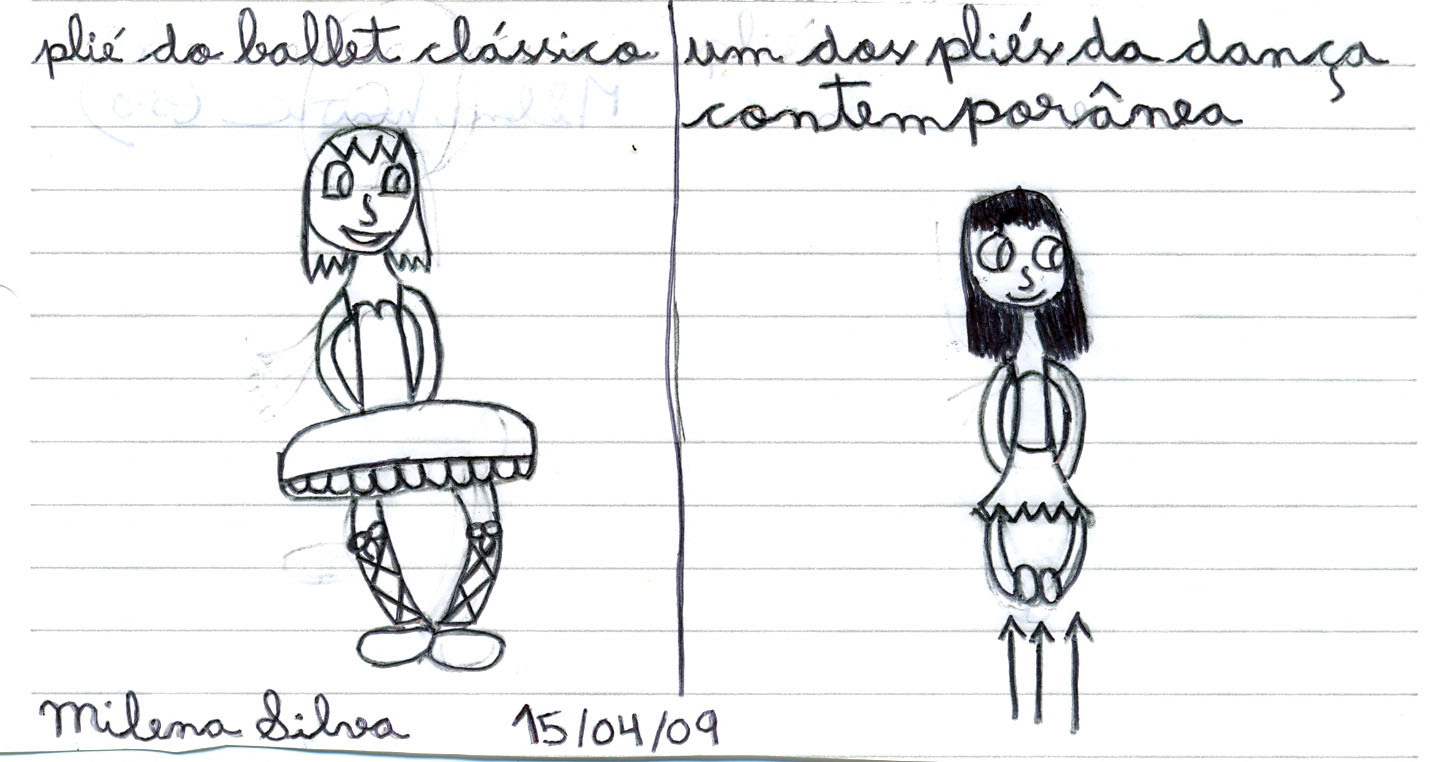 plié do ballet clássico
um dos pliés da dança
contemporânea
Milena Silva 15/04/09